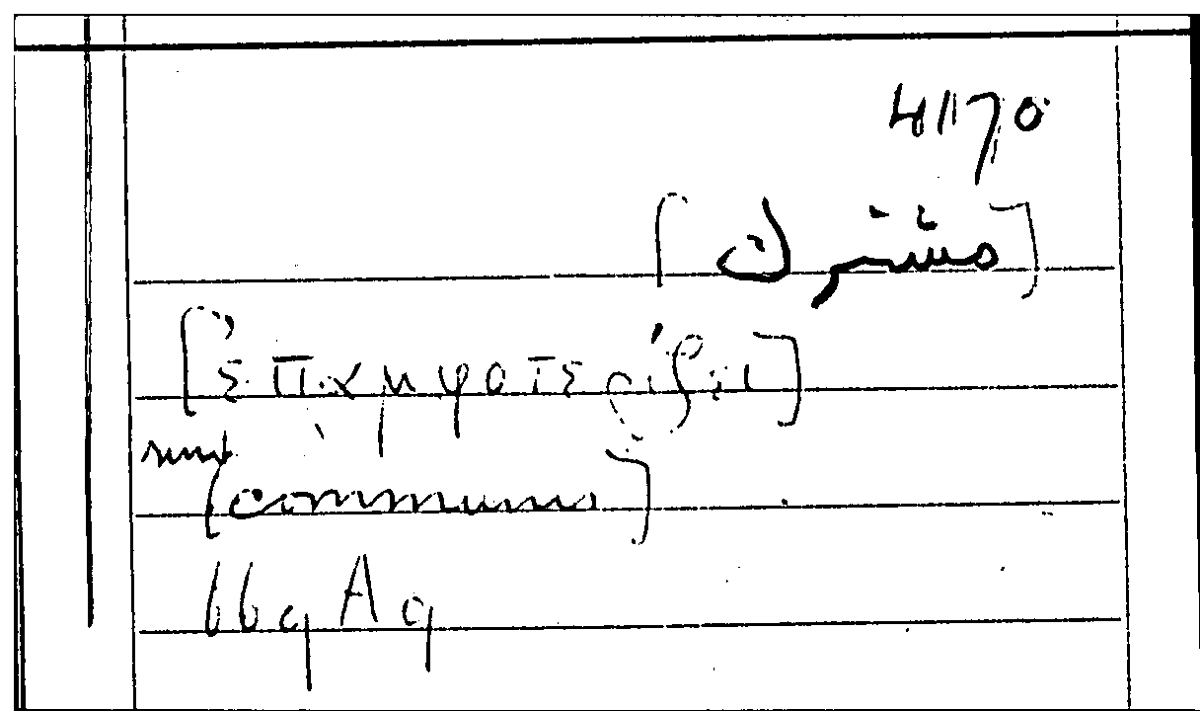 41170
[مشترك]
[ἐπαμφοτερίζει]
sunt
[communis]
669 A 9